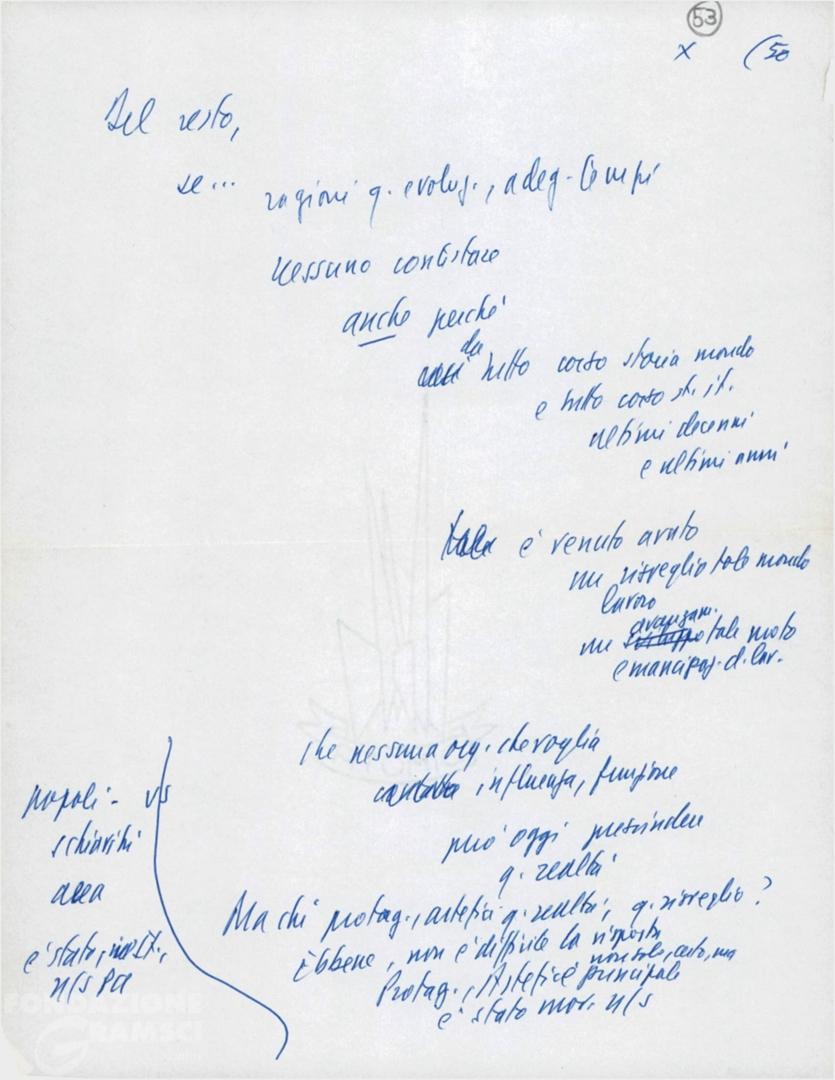 53
x (50
Del resto,
se...
ragioni q. evoluz., adeg. tempi
nessuno contestare
anche perché
da
tutto corso storia mondo
e tutto corso st. it.
ultimi decenni
e ultimi anni
è venuto avanti
un risveglio tale mondo
lavoro
avanzam.
un sviluppo tale moto
emancipaz. d. lav.
che nessuna org. che voglia
influenza, funzione
può oggi prescindere
q. realtà
Ma chi protag., artefici q. realtà, q. risveglio?
Ebbene, non è difficile la risposta
non solo, certo, ma
Protag., Artefice principale
è stato mov. n/s
popoli - vs
schiavitù
è stato, in It.,
n/s
FONDAZIONE
GRAMSCI